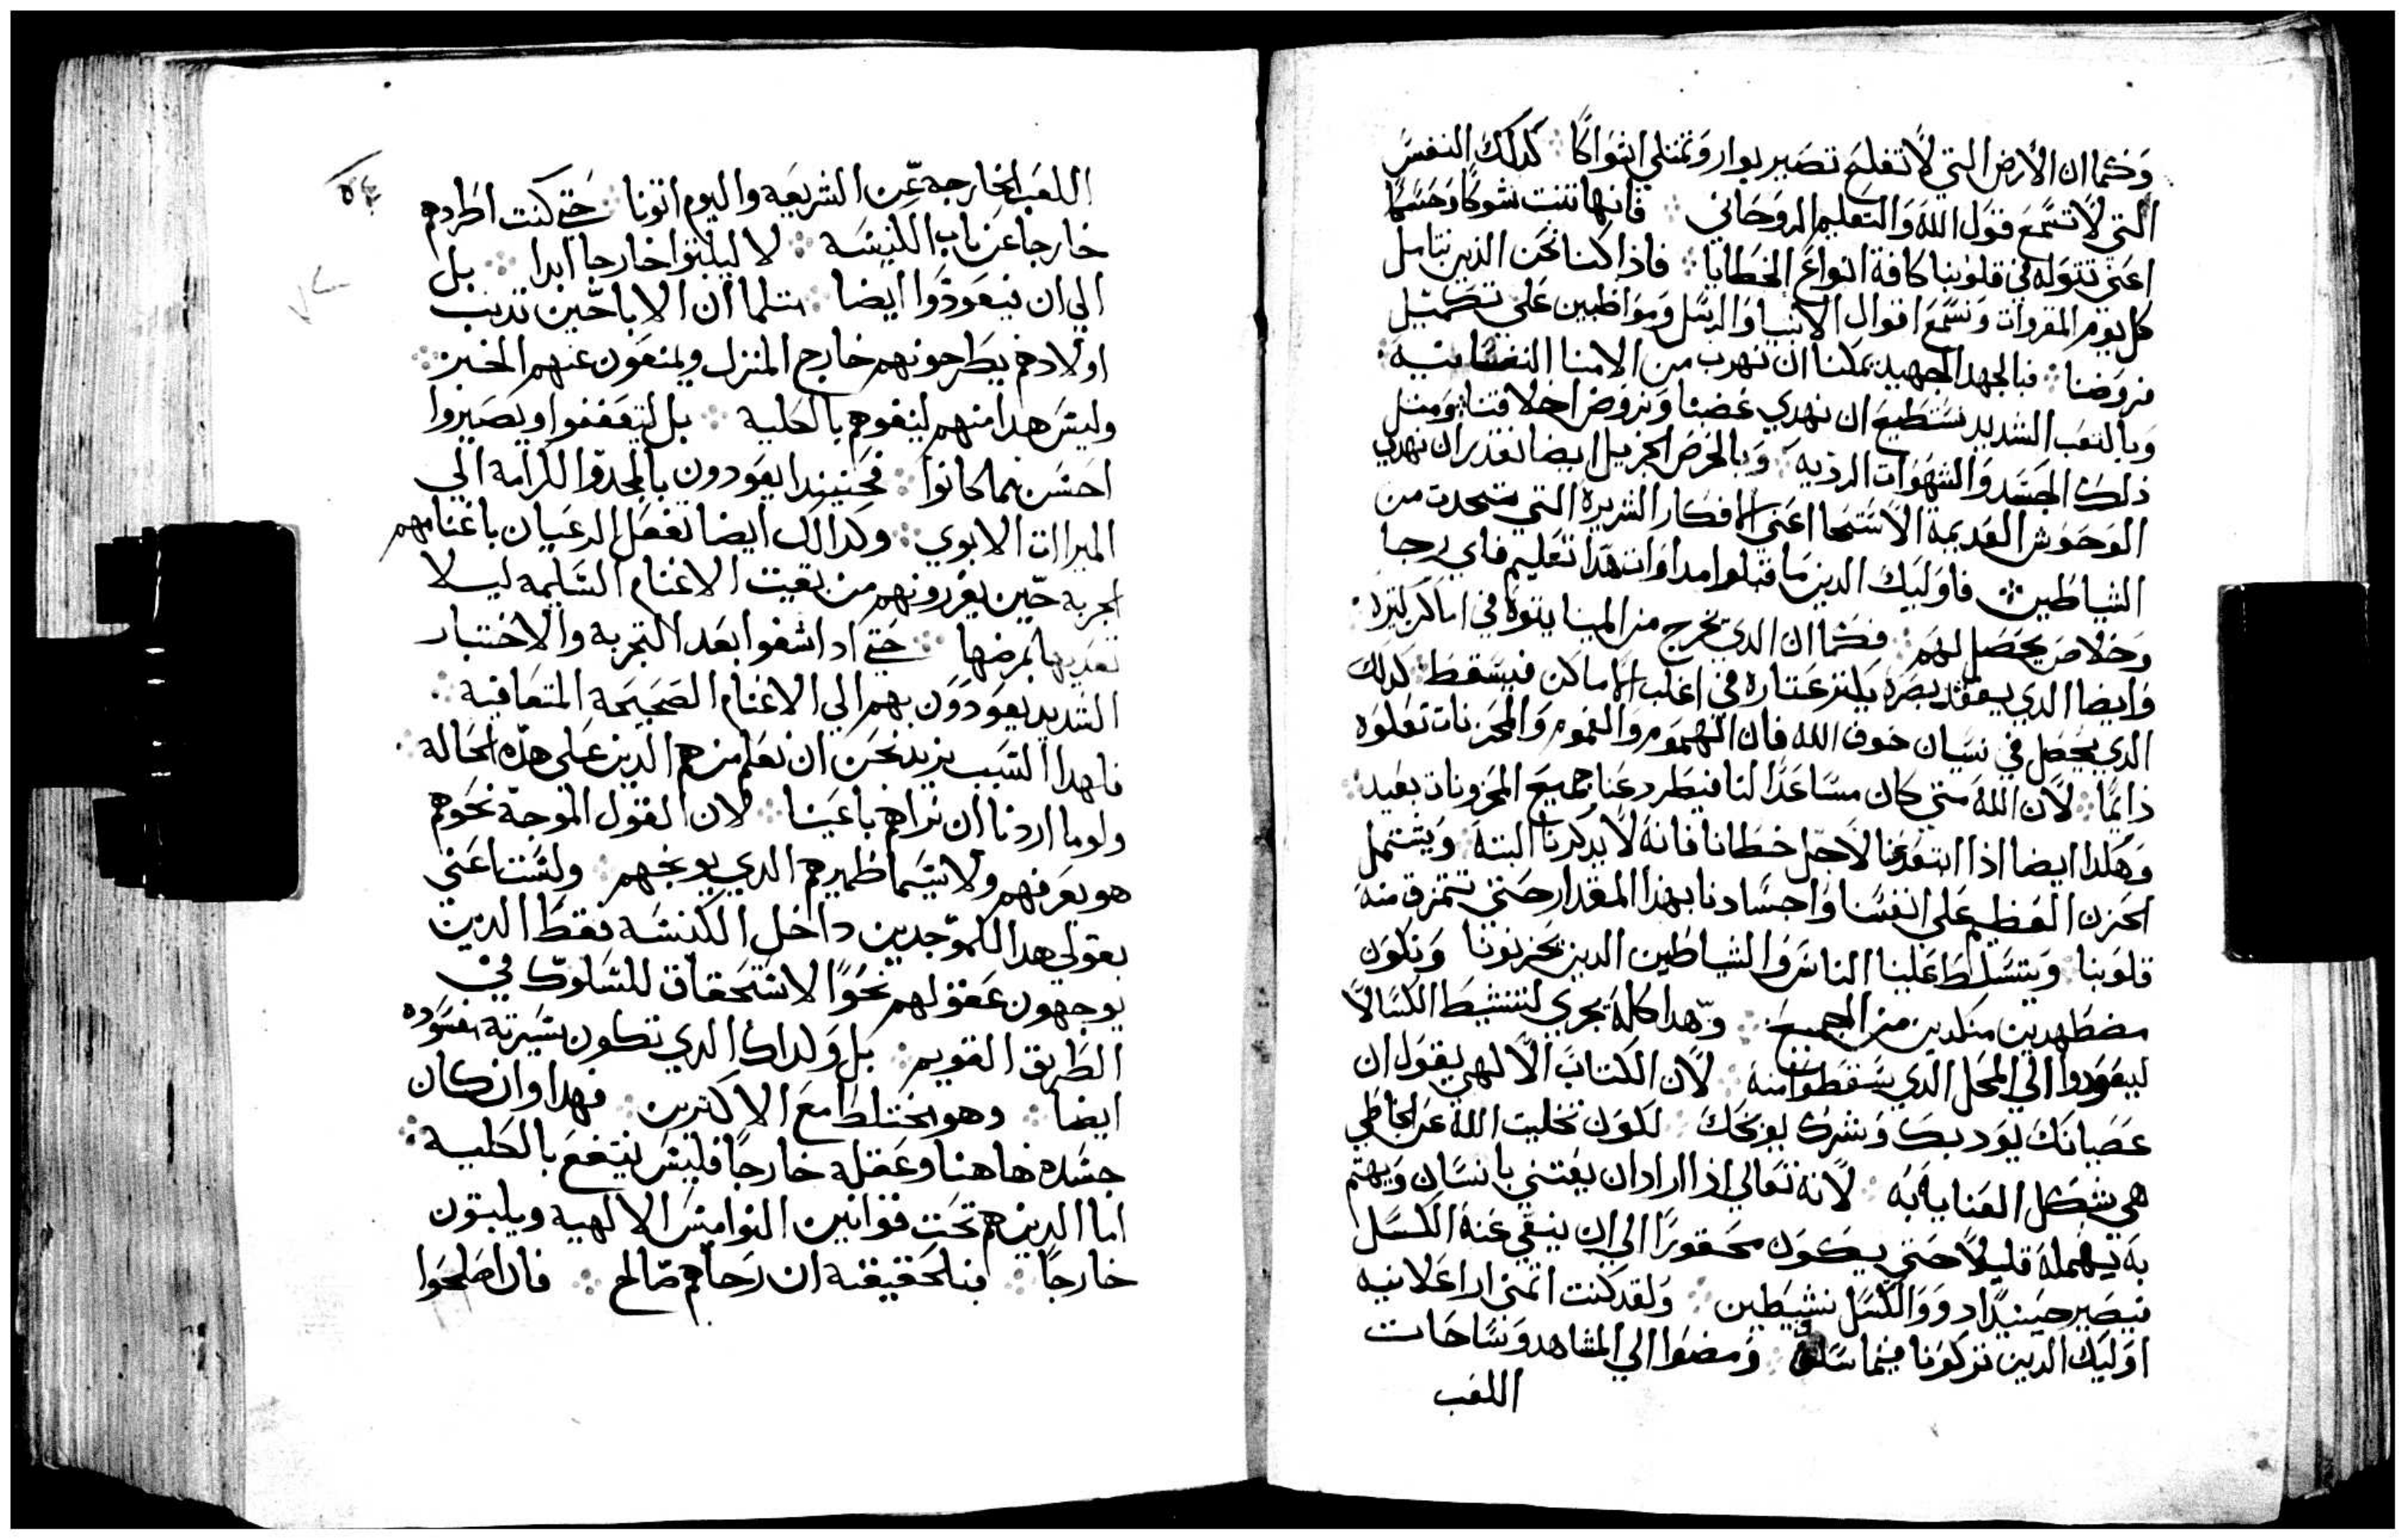 وكما ان الارض التي لا تفلح تصير بوار وتمتلي اشواكا ؞ كذلك النفس
التي لا تسمع قول الله والتعليم الروحاني ؞ فانها تنبت شوكا وحسكا
اعني تتوله في قلوبنا كافة انواع الخطايا ؞ فاذا كنا نحن الذين نتامل
كل يوم المقروات ونسمع اقوال الانبيا والرسل ومواظبين على تكميل
فروضنا ؞ فبالجهد الجهيد يمكننا ان نهرب من الامنا النفسانيه ؞
وبالتعب الشديد نستطيع ان نهدي غضبنا ونروض اخلاقنا ؞ ومثل
ذلك الجسد والشهوات الرديه ؞ وبالحرص الجزيل ايضا نقدر ان نهدي
الوحوش القديمة الاستحا اعني الافكار الشريرة التي تتحدت من
الشياطين ؞ فاوليك الدين ما قبلوا مداوات هدا تعليم فاي رجا
وخلاص يحصل لهم ؞ فكما ان الدي يخرج من المينا يتوه في اماكن كتيرة ؞
وايضا الدي يفقد بصره يلتزم عتاره في اغلب الاماكن فيسقط ؞ كدلك
الدي يحصل في نسيان خوف الله فان الهموم والغموم والمحزنات تعلوه
دايما ؞ لان الله متي كان مساعدا لنا فيطرد عنا جميع المحزونات بعيد ؞
وهكدا ايضا اذا ابتعد عنا لاجل خطانا فانه لا يدكرنا البته ؞ ويشتمل
الحزن العظيم علي انفسنا واجسادنا بهدا المقدار حتي تتمزق منه
قلوبنا ؞ ويتسلط علينا الناس والشياطين الدين يحزنونا ونكون
مضطهدين منكدين من الجميع ؞ وهدا كله يجري لتنشيط الكسالا
ليعودوا الي المحل الدي سقطوا منه ؞ لان الكتاب الالهي يقول ان
عصيانك يودبك وشرك يوبخك ؞ لكون تخليت الله عن الخاطي
هي شكل العناية به ؞ لانه تعالي اذا اراد ان يعتني بانسان ويهتم
به يهمله قليلا حتي يكون محقورا الي ان ينقي عنه الكسل
فيصير حينيدا دوو الكسل نشيطين ؞ ولقد كنت اتمنى ارا علانيه
اوليك الدين تركونا فيما سلف ؞ ومضوا الي المشاهد وساحات
اللعب
٥٤
اللعب الخارجه عن الشريعه واليوم اتونا ؞ حتي كنت اطردهم
خارجا عن باب الكنيسه ؞ لا ليلبتوا خارجا ابدا ؞ بل
الي ان يعودوا ايضا ؞ متلما ان الابا حين تدنب
اولادهم يطرحونهم خارج المنزل ويمنعون عنهم الخبز ؞
وليس هدا منهم لينفوهم بالكلية ؞ بل ليتعففوا ويصيروا
احسن مما كانوا ؞ فحنيندا يعودون بالمجد والكرامة الي
الميرات الابوي ؞ وكدالك ايضا تفعل الرعيان باغنامهم
الجربه حين يفرزونهم من بقيت الاغنام السليمه ليلا
تعديها بمرضها ؞ حتي ادا شفوا بعد التجربة والاختبار
الشديد يعودون بهم الي الاغنام الصحيحة المتعافية ؞
فلهدا السبب نريد نحن ان نعلم من هم الدين علي هده الحالة ؞
ولو ما اردنا ان نراهم باعيننا ؞ لان القول الموجه نحوهم
هو يعرفهم ولا سيما ظميرهم الدي يوبخهم ؞ ولست اعني
بقولي هدا للموجدين داخل الكنسه فقط الدين
يوجهون عقولهم نحوا الاستحقاق للسلوك في
الطريق القويم ؞ بل ولداك الدي تكون سيرته مفسوده
ايضا ؞ وهو يختلط مع الاكترين ؞ فهدا وان كان
جسده هاهنا وعقله خارجا فليس ينتفع بالكلية ؞
اما الدين هم تحت قوانين النواميس الالهيه ويلبتون
خارجا ؞ فبالحقيقه ان رجاهم صالح ؞ فان اصلحوا